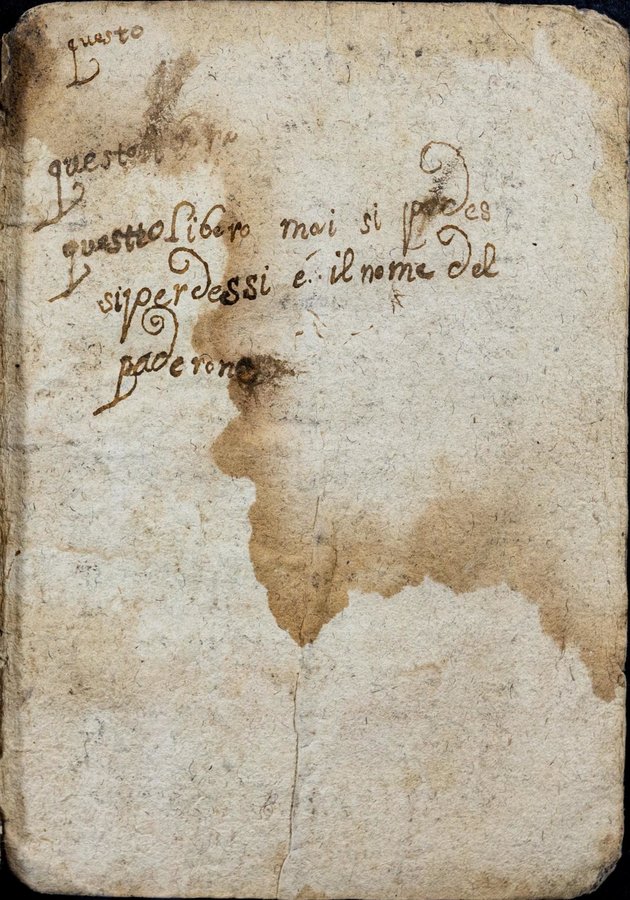 questo
questo
questto libero mai si perdes
siperdessi é il nome del
paderone